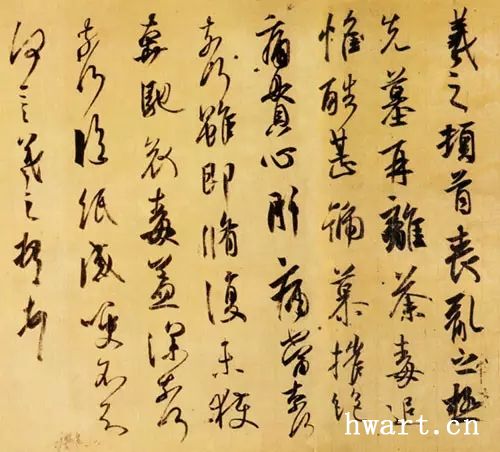 羲之頓首喪亂之極
先墓再離荼毒追
惟酷甚號慕摧絕
痛貫心肝痛當奈何
奈何雖即脩復未獲
奔馳哀毒益深奈何
奈何臨紙感哽不知
何言羲之頓首頓首
hwart.cn